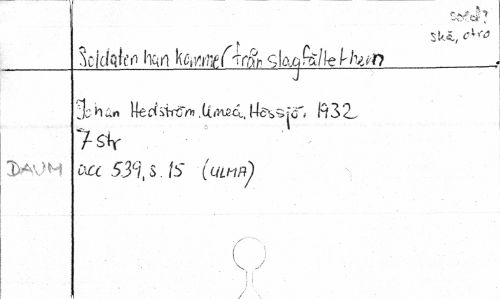 sold?
skä, otro
Soldaten han kommer från slagfältet hem
Johan Hedström, Umeå, Hössjö. 1932
7 str
DAUM acc 539, s. 15 (ULMA)